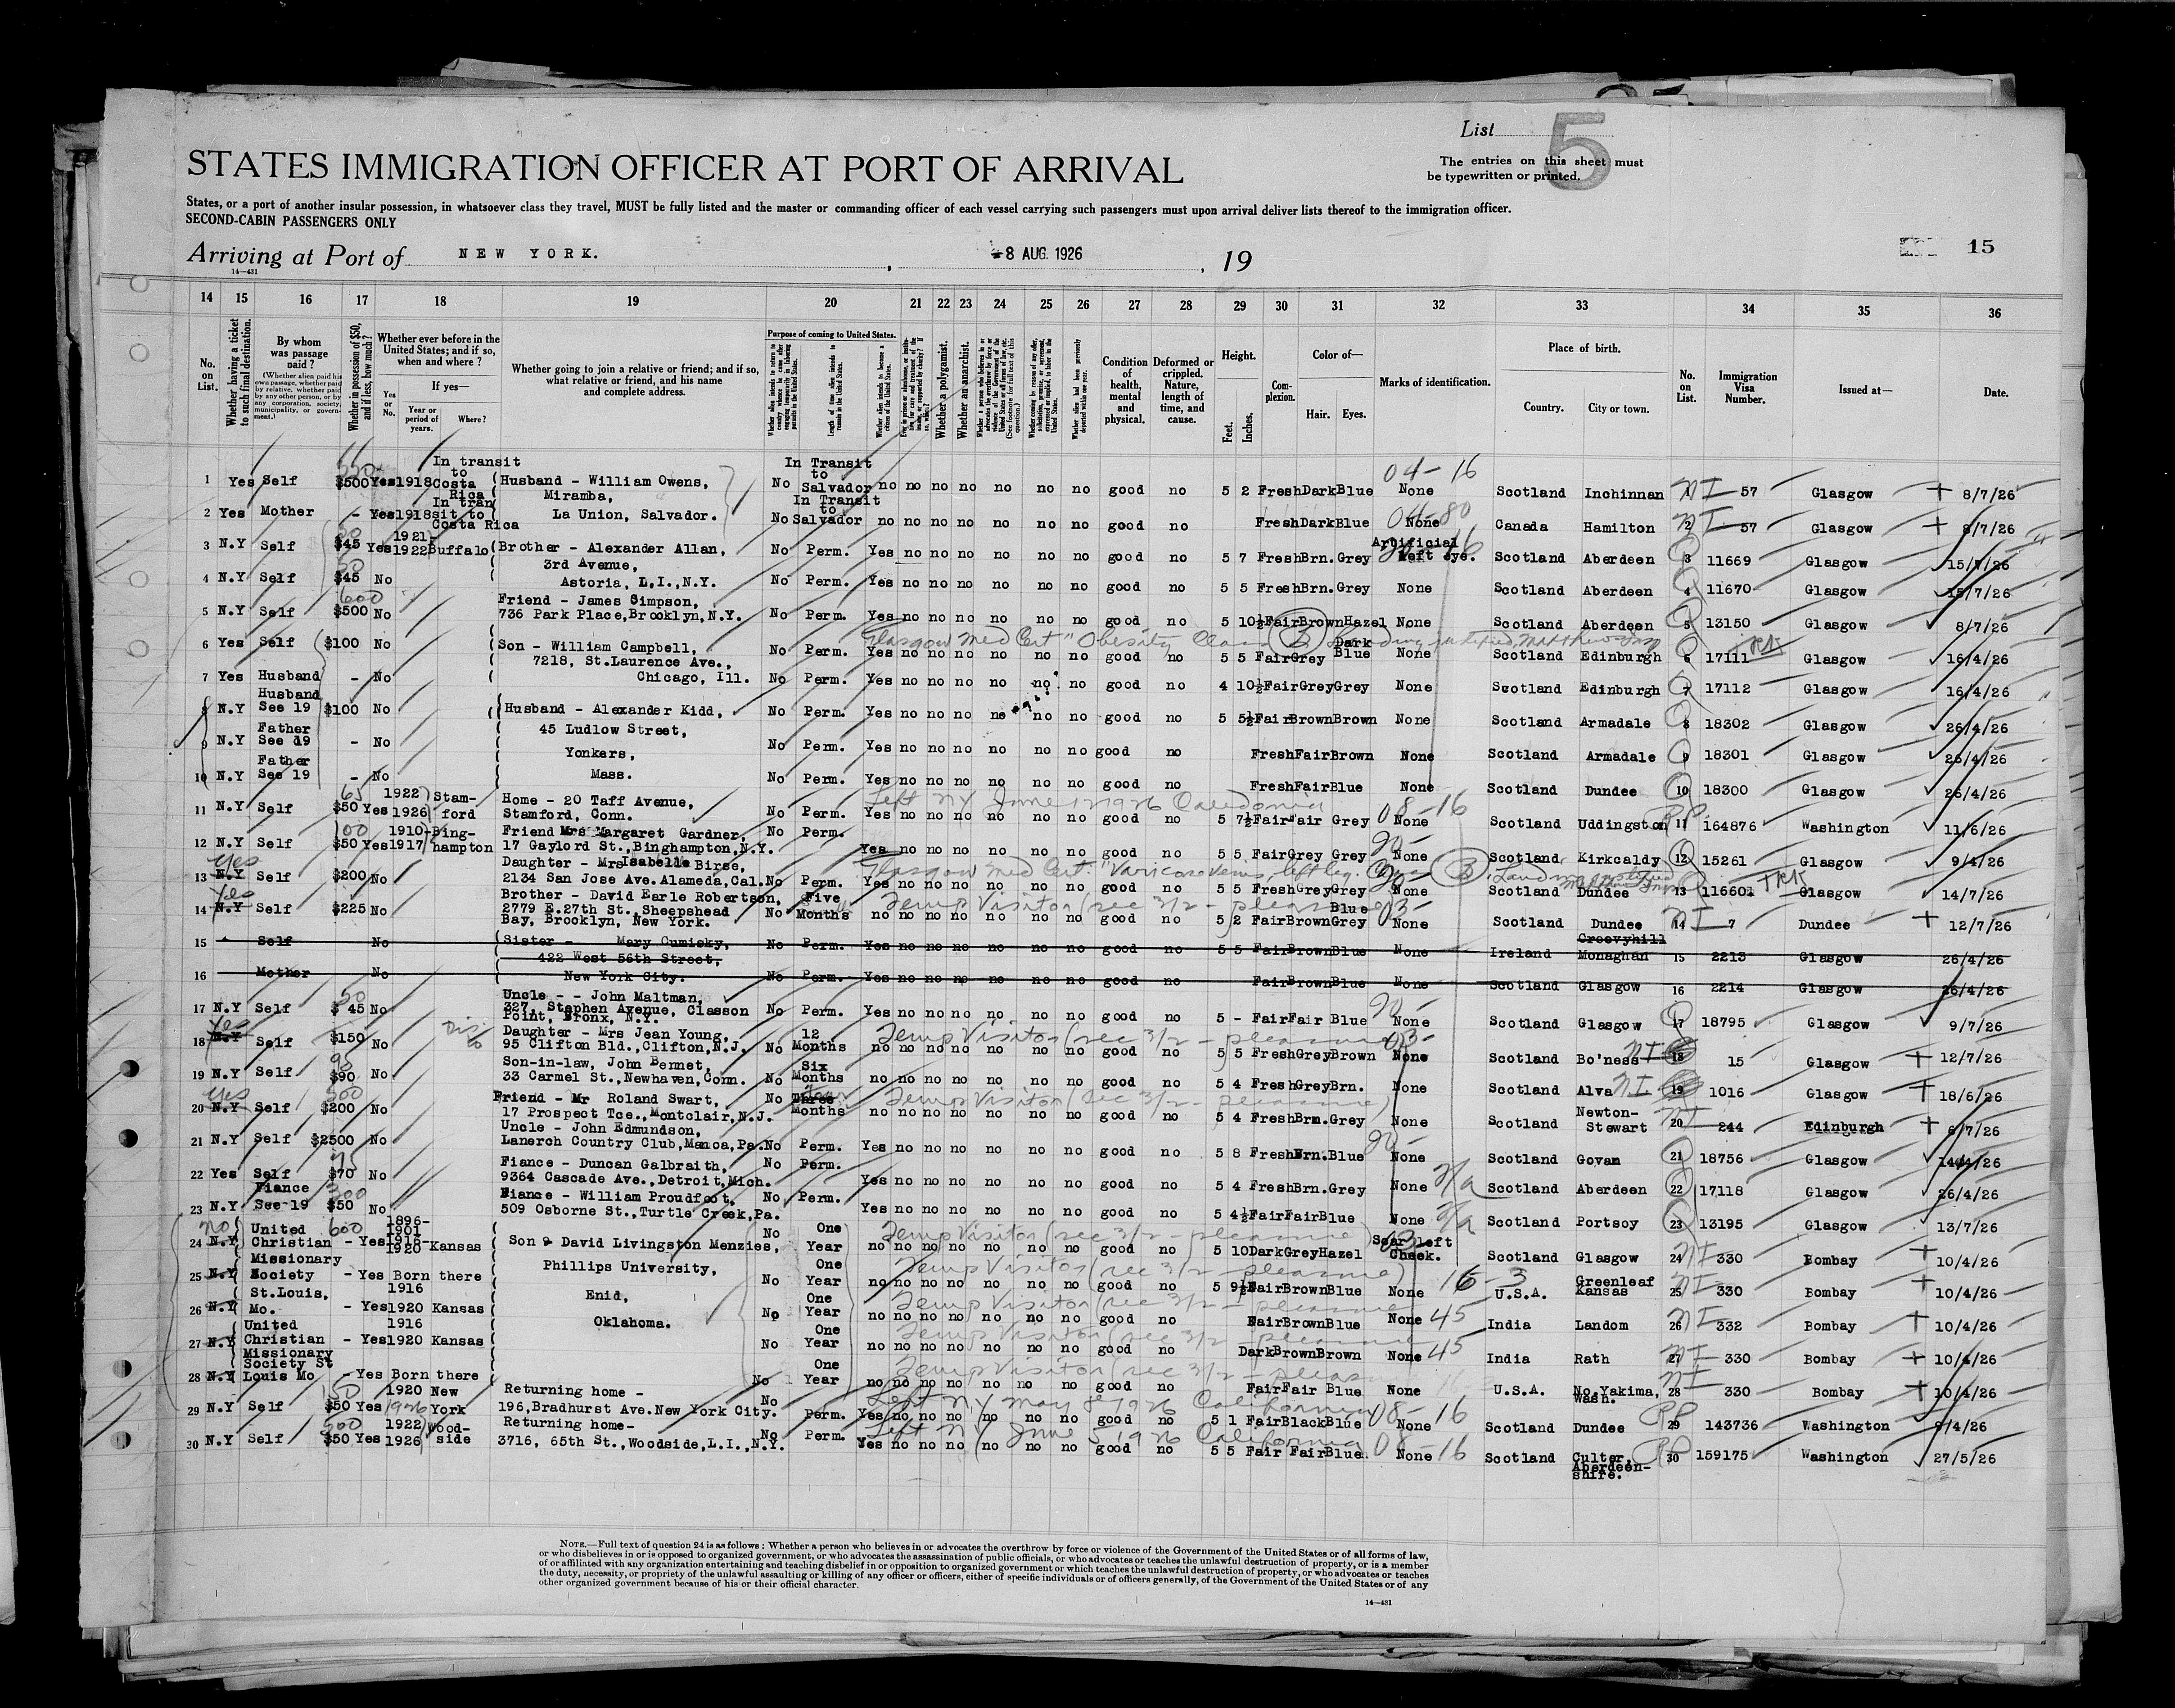 List 5
STATES IMMIGRATION OFFICER AT PORT OF ARRIVAL
The entries on this sheet must
be typewritten or printed.
States, or a port of another insular possession, in whatsoever class they travel, MUST be fully listed and the master or commanding officer of each vessel carrying such passengers must upon arrival deliver lists thereof to the immigration officer.
SECOND-CABIN PASSENGERS ONLY
Arriving at Port of NEW YORK. , 8 AUG. 1926 , 19
15
14—431
14 15 16 17 18 19 20 21 22 23 24 25 26 27 28 29 30 31 32 33 34 35 36
No. on List.
Whether having a ticket to such final destination.
By whom was passage paid?
(Whether alien paid his own passage, whether paid by relative, whether paid by any other person, or by any corporation, society, municipality, or government.)
Whether in possession of $50, and if less, how much?
Whether ever before in the United States; and if so, when and where?
Yes or No.
If yes—
Year or period of years.
Where?
Whether going to join a relative or friend; and if so, what relative or friend, and his name and complete address.
Purpose of coming to United States.
Whether a polygamist.
Whether an anarchist.
Condition of health, mental and physical.
Deformed or crippled. Nature, length of time, and cause.
Height.
Feet. Inches.
Complexion.
Color of—
Hair. Eyes.
Marks of identification.
Place of birth.
Country. City or town.
No. on List.
Immigration Visa Number.
Issued at—
Date.
1 Yes Self $500 Yes 1918 In transit to Costa Rica Husband - William Owens, No In Transit to Salvador no no no no no no good no 5 2 Fresh Dark Blue None 04-16 Scotland Inchinnan 1 NI 57 Glasgow 8/7/26
Miramba,
2 Yes Mother - Yes 1918 In transit to Costa Rica La Union, Salvador. No In Transit to Salvador no no no no no no good no Fresh Dark Blue None 04-80 Canada Hamilton 2 NI 57 Glasgow 8/7/26
3 N.Y Self $45 Yes 1921-1922 Buffalo Brother - Alexander Allan, No Perm. Yes no no no no no no good no 5 7 Fresh Brn. Grey Artificial left eye. Scotland Aberdeen 3 11669 Glasgow 15/7/26
3rd Avenue,
4 N.Y Self $45 No Astoria, L.I.,N.Y. No Perm. Yes no no no no no no good no 5 5 Fresh Brn. Grey None Scotland Aberdeen 4 11670 Glasgow 15/7/26
5 N.Y Self $500 600 No Friend - James Simpson, 736 Park Place, Brooklyn, N.Y. No Perm. Yes no no no no no no good no 5 10½ Fair Brown Hazel None Scotland Aberdeen 5 13150 Glasgow 8/7/26
Glasgow Med Cert "Obesity
6 Yes Self $100 No Son - William Campbell, No Perm. Yes no no no no no no good no 5 5 Fair Grey Dark Blue None Scotland Edinburgh 6 17111 Glasgow 16/4/26
7218, St.Laurence Ave.,
7 Yes Husband - No Chicago, Ill. No Perm. Yes no no no no no no good no 4 10½ Fair Grey Grey None Scotland Edinburgh 7 17112 Glasgow 16/4/26
8 N.Y Husband See 19 $100 No Husband - Alexander Kidd, No Perm. Yes no no no no no no good no 5 5½ Fair Brown Brown None Scotland Armadale 8 18302 Glasgow 26/4/26
45 Ludlow Street,
9 N.Y Father See 19 - No Yonkers, No Perm. Yes no no no no no no good no Fresh Fair Brown None Scotland Armadale 9 18301 Glasgow 26/4/26
10 N.Y Father See 19 - No Mass. No Perm. Yes no no no no no no good no Fresh Fair Blue None Scotland Dundee 10 18300 Glasgow 26/4/26
Left NY June 12 1926 Caledonia
11 N.Y Self $50 65 Yes 1922 1926 Stamford Home - 20 Taff Avenue, Stamford, Conn. No Perm. Yes no no no no no no good no 5 7½ Fair Fair Grey None 08-16 Scotland Uddingston 11 164876 Washington 11/6/26
12 N.Y Self $50 100 Yes 1910-1917 Binghampton Friend Mrs Margaret Gardner, 17 Gaylord St., Binghampton, N.Y. No Perm. Yes no no no no no no good no 5 5 Fair Grey Grey None Scotland Kirkcaldy 12 15261 Glasgow 9/4/26
Glasgow Med Cert. "Varicose veins, left leg.
13 N.Y Yes Self $200 No Daughter - Mrs Isabella Birse, 2134 San Jose Ave. Alameda, Cal. No Perm. Yes no no no no no no good no 5 5 Fresh Grey Grey None Scotland Dundee 13 116601 Glasgow 14/7/26
Temp Visitor (sec 3/2 - pleasure)
14 N.Y Yes Self $225 No Brother - David Earle Robertson, 2779 E.27th St., Sheepshead Bay, Brooklyn, New York. No Five Months no no no no no no no good no 5 2 Fair Brown Blue Grey None 03- Scotland Dundee 14 NI 7 Dundee 12/7/26
15 Self No Sister - Mary Cumisky, No Perm. Yes no no no no no no good no 5 5 Fair Brown Blue None Ireland Creevyhill Monaghan 15 2213 Glasgow 26/4/26
422 West 56th Street,
16 Mother No New York City. No Perm. Yes no no no no no no good no Fair Brown Blue None Scotland Glasgow 16 2214 Glasgow 26/4/26
17 N.Y Self $45 50 No Uncle - - John Maltman, 327, Stephen Avenue, Classon Point, Bronx, N.Y. No Perm. Yes no no no no no no good no 5 - Fair Fair Blue None Scotland Glasgow 17 18795 Glasgow 9/7/26
Temp Visitor (sec 3/2 - pleasure)
18 N.Y Yes Self $150 No Daughter - Mrs Jean Young, 95 Clifton Bld., Clifton, N.J. No 12 Months no no no no no no no good no 5 5 Fresh Grey Brown None 03- Scotland Bo'ness NI 18 15 Glasgow 12/7/26
19 N.Y Self $90 95 No Son-in-law, John Bennet, 33 Carmel St., Newhaven, Conn. No Six Months no no no no no no no good no 5 4 Fresh Grey Brn. None Scotland Alva NI 19 1016 Glasgow 18/6/26
Temp Visitor (sec 3/2 - pleasure)
20 N.Y Yes Self $200 300 No Friend - Mr Roland Swart, 17 Prospect Tce., Montclair, N.J. No Three Months no no no no no no no good no 5 4 Fresh Brn. Grey None Scotland Newton-Stewart 20 NI 244 Edinburgh 6/7/26
21 N.Y Self $2500 No Uncle - John Edmundson, Lanerch Country Club, Manoa, Pa. No Perm. Yes no no no no no no good no 5 8 Fresh Brn. Blue None Scotland Govan 21 18756 Glasgow
22 Yes Self $70 75 No Fiance - Duncan Galbraith, 9364 Cascade Ave., Detroit, Mich. No Perm. Yes no no no no no no good no 5 4 Fresh Brn. Grey None Scotland Aberdeen 22 17118 Glasgow 26/4/26
23 N.Y Fiance See 19 $50 300 No Fiance - William Proudfoot, 509 Osborne St., Turtle Creek, Pa. No Perm. Yes no no no no no no good no 5 4½ Fair Fair Blue None Scotland Portsoy 23 13195 Glasgow 13/7/26
Temp Visitor (sec 3/2 - pleasure)
24 N.Y no United Christian 600 - Yes 1896-1901 1918-1920 Kansas Son David Livingston Menzies, No One Year no no no no no no no good no 5 10 Dark Grey Hazel Scar left Cheek. Scotland Glasgow 24 NI 330 Bombay 10/4/26
Temp Visitor (sec 3/2 - pleasure)
25 N.Y Missionary Society - Yes Born there Phillips University, No One Year no no no no no no no good no 5 9½ Fair Brown Blue None 16-3 U.S.A. Greenleaf Kansas 25 NI 330 Bombay 10/4/26
Temp Visitor (sec 3/2 - pleasure)
26 N.Y St.Louis, Mo. - Yes 1916 1920 Kansas Enid, Oklahoma. No One Year no no no no no no no good no Fair Brown Blue None 45 India Landom 26 NI 332 Bombay 10/4/26
Temp Visitor (sec 3/2 - pleasure)
27 N.Y United Christian - Yes 1916 1920 Kansas No One Year no no no no no no no good no Dark Brown Brown None 45 India Rath 27 NI 330 Bombay 10/4/26
Temp Visitor (sec 3/2 - pleasure
28 N.Y Missionary Society St Louis Mo - Yes Born there No One Year no no no no no no no good no Fair Fair Blue None U.S.A. No.Yakima, Wash. 28 NI 330 Bombay 10/4/26
Left NY May 8 1926 California
29 N.Y Self $50 Yes 1920 1926 New York Returning home - 196, Bradhurst Ave. New York City. No Perm. Yes no no no no no no good no 5 1 Fair Black Blue None 08-16 Scotland Dundee 29 143736 Washington 9/4/26
Left NY June 5 1926 California
30 N.Y Self $50 Yes 1922 1926 Woodside Returning home- 3716, 65th St., Woodside, L.I., N.Y. No Perm. Yes no no no no no no good no 5 5 Fair Fair Blue None 08-16 Scotland Culter, Aberdeenshire. 30 159175 Washington 27/5/26
NOTE.—Full text of question 24 is as follows: Whether a person who believes in or advocates the overthrow by force or violence of the Government of the United States or of all forms of law,
or who disbelieves in or is opposed to organized government, or who advocates the assassination of public officials, or who advocates or teaches the unlawful destruction of property, or is a member
of or affiliated with any organization entertaining and teaching disbelief in or opposition to organized government or which teaches the unlawful destruction of property, or who advocates or teaches
the duty, necessity, or propriety of the unlawful assaulting or killing of any officer or officers, either of specific individuals or of officers generally, of the Government of the United States or of any
other organized government because of his or their official character.
14—431